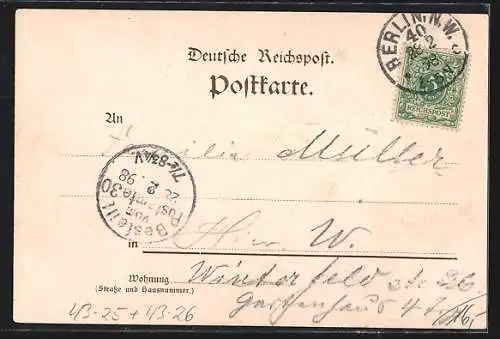 BERLIN, N.W.
40
26 2
98
REICHSPOST
Deutsche Reichspost.
Postkarte.
An
Müller
Bestellt
vom
Postamte 30
26. 2. 98
7¼-8½N
in
Hier W.
Wohnung
(Straße und Hausnummer.)
Winterfeld str.
Gartenhaus
43-25 + 43-26
16,